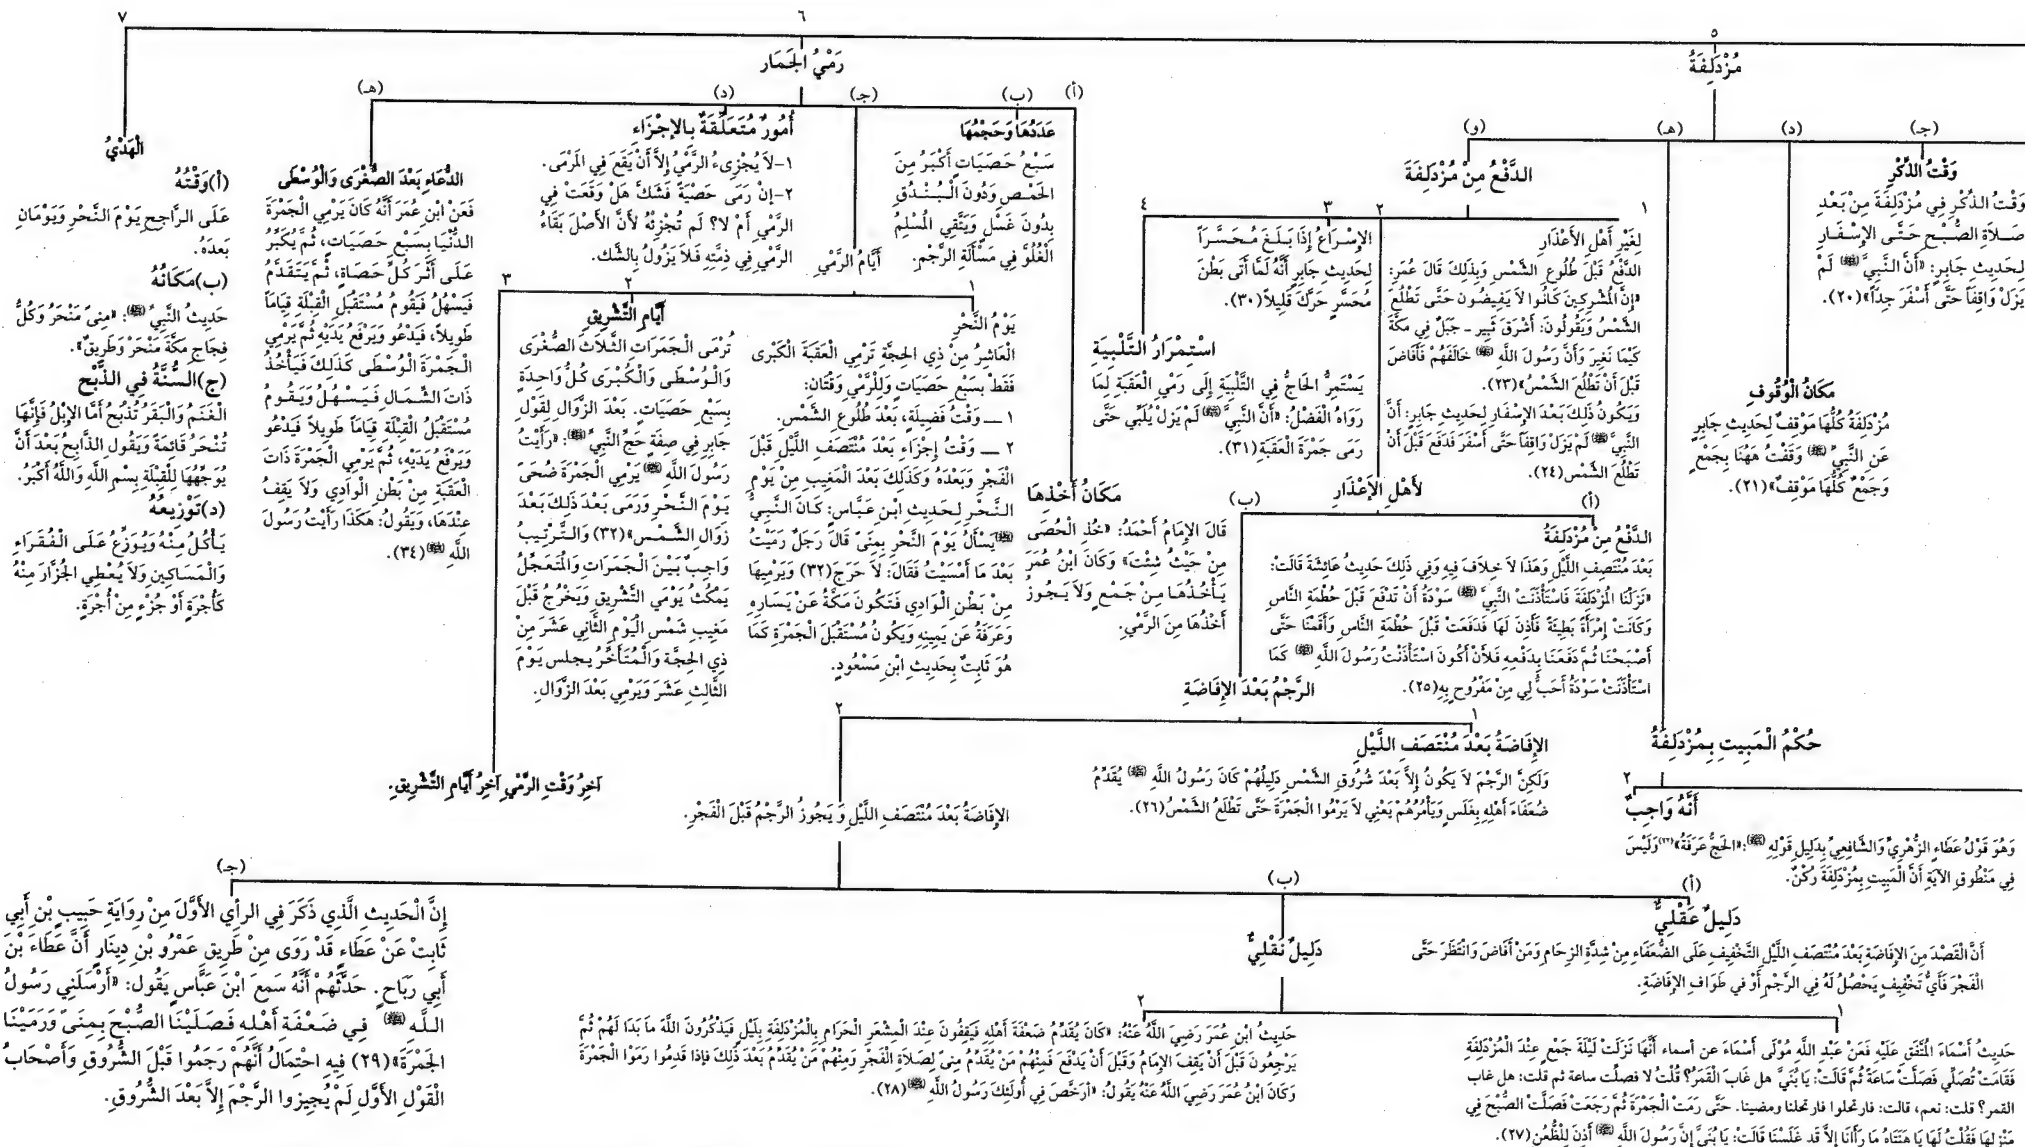 ٥
مُزْدَلِفَةُ
(جـ)
وَقْتُ الذِّكْرِ
وَقْتُ الذِّكْرِ فِي مُزْدَلِفَةَ مِنْ بَعْدِ
صَلاَةِ الصُّبْحِ حَتَّى الإِسْفَارِ
لِحَدِيثِ جَابِرٍ: «أَنَّ النَّبِيَّ ﷺ لَمْ
يَزَلْ وَاقِفاً حَتَّى أَسْفَرَ جِدّاً»(٢٠).
(د)
مَكَانُ الْوُقُوفِ
مُزْدَلِفَةُ كُلُّهَا مَوْقِفٌ لِحَدِيثِ جَابِرٍ
عَنِ النَّبِيِّ ﷺ وَقَفْتُ هَهُنَا بِجَمْعٍ
وَجَمْعٌ كُلُّهَا مَوْقِفٌ»(٢١).
(هـ)
حُكْمُ الْمَبِيتِ بِمُزْدَلِفَةُ
٢
أَنَّهُ وَاجِبٌ
وَهُوَ قَوْلُ عَطَاءٍ الزُّهْرِيِّ وَالشَّافِعِيِّ بِدَلِيلِ قَوْلِهِ ﷺ: «الحَجُّ عَرَفَةُ»(٢٢) وَلَيْسَ
فِي مَنْطُوقِ الآيَةِ أَنَّ الْمَبِيتَ بِمُزْدَلِفَةَ رُكْنٌ.
(و)
الدَّفْعُ مِنْ مُزْدَلِفَةَ
١
لِغَيْرِ أَهْلِ الأَعْذَارِ
الدَّفْعُ قَبْلَ طُلُوعِ الشَّمْسِ وَبِذَلِكَ قَالَ عُمَرِ:
«إِنَّ الْمُشْرِكِينَ كَانُوا لاَ يَفِيضُون حَتَّى تَطْلُعَ
الشَّمْسُ وَيَقُولُونَ: أَشْرَقَ ثَبِير - جَبَلٌ فِي مَكَّةَ
كَيْمَا نَغِيرَ وَأَنَّ رَسُولَ اللَّهِ ﷺ خَالَفَهُمْ فَأَفَاضَ
قَبْلَ أَنْ تَطْلُعَ الشَّمْسُ»(٢٣).
وَيَكُونُ ذَلِكَ بَعْدَ الإِسْفَارِ لِحَدِيثِ جَابِرٍ: أَنَّ
النَّبِيَّ ﷺ لَمْ يَزَلْ وَاقِفاً حَتَّى أَسْفَرَ فَدَفَعَ قَبْلَ أَنْ
تَطْلُعَ الشَّمْسِ(٢٤).
٢
لأَهْلِ الأَعْذَارِ
(أ)
الدَّفْعُ مِنْ مُزْدَلِفَةُ
بَعْدَ مُنْتَصِفِ اللَّيْلِ وَهَذَا لاَ خِلاَفَ فِيهِ وَفِي ذَلِكَ حَدِيثُ عَائِشَةَ قَالَتْ:
«نَزَلْنَا الْمُزْدَلِفَةَ فَاسْتَأْذَنَتْ النَّبِيَّ ﷺ سَوْدَةُ أَنْ تَدْفَعَ قَبْلَ حُطْمَةِ النَّاسِ
وَكَانَتْ إِمْرَأَةً بَطِيئَةً فَأَذِنَ لَهَا فَدَفَعَتْ قَبْلَ حُطْمَةِ النَّاسِ وَأَقَمْنَا حَتَّى
أَصْبَحْنَا ثُمَّ دَفَعْنَا بِدَفْعِهِ فَلأَنْ أَكُونَ اسْتَأْذَنْتُ رَسُولَ اللَّهِ ﷺ كَمَا
اسْتَأْذَنَتْ سَوْدَةُ أَحَبَّ لِي مِنْ مَفْرُوحٍ بِهِ(٢٥).
(ب)
الرَّجْمُ بَعْدَ الإِفَاضَةِ
١
الإِفَاضَةُ بَعْدَ مُنْتَصَفِ اللَّيْلِ
وَلَكِنَّ الرَّجْمَ لاَ يَكُونُ إِلاَّ بَعْدَ شُرُوقِ الشَّمْسِ دَلِيلُهُمْ كَانَ رَسُولُ اللَّهِ ﷺ يُقَدِّمُ
ضُعَفَاءَ أَهْلِهِ بِغَلَسٍ وَيَأْمُرُهُمْ يَعْنِي لاَ يَرْمُوا الْجَمْرَةَ حَتَّى تَطْلَعُ الشَّمْسُ(٢٦).
٢
الإِفَاضَةُ بَعْدَ مُنْتَصَفِ اللَّيْلِ وَ يَجُوزُ الرَّجْمُ قَبْلَ الْفَجْرِ.
(أ)
دَلِيلٌ عَقْلِيٌّ
أَنَّ الْقَصْدَ مِنَ الإِفَاضَةِ بَعْدَ مُنْتَصَفِ اللَّيْلِ التَّخْفِيفُ عَلَى الضُّعَفَاءِ مِنْ شِدَّةِ الزِحَامِ وَمَنْ أَفَاضَ وَانْتَظَرَ حَتَّى
الْفَجْرَ فَأَيُّ تَخْفِيفٍ يَحْصُلُ لَهُ فِي الرَّجْمِ أَوْ فِي طَوَافِ الإِفَاضَةِ.
(ب)
دَلِيلٌ نَقْلِيٌّ
١
حَدِيثُ أَسْمَاءَ الْمُتَّفَقِ عَلَيْهِ فَعَنْ عَبْدِ اللَّهِ مُوْلَى أَسْمَاءَ عن أسماء أَنَّهَا نَزَلَتْ لَيْلَةَ جَمْعٍ عِنْدَ الْمُزْدَلِفَةِ
فَقَامَتْ تُصَلِّي فَصَلَّتْ سَاعَةً ثُمَّ قَالَتْ: يَا بُنَيَّ هل غَابَ الْقَمَرُ؟ قُلْتُ لا فصلَّت ساعة ثم قلت: هل غاب
القمر؟ قلت: نعم، قالت: فارتحلوا فارتحلنا ومضينا. حَتَّى رَمَتْ الْجَمْرَةَ ثُمَّ رَجَعَتْ فَصَلَّتْ الصُّبْحَ فِي
مَنْزِلِهَا فَقُلْتُ لَهَا يَا هَنَتَاهُ مَا رَأَانَا إِلاَّ قَد غَلَّسْنَا قَالَتْ: يَا بُنَيَّ إِنَّ رَسُولَ اللَّهِ ﷺ أَذِنَ لِلظُّعُنِ(٢٧).
٢
حَدِيثُ ابْنِ عُمَرَ رَضِيَ اللَّهُ عَنْهُ: «كَانَ يُقَدِّمُ ضَعْفَةَ أَهْلِهِ فَيَقِفُونَ عِنْدَ الْمِشْعَرِ الْحَرَامِ بِالْمُزْدَلِفَةِ بِلَيْلٍ فَيَذْكُرُونَ اللَّهَ مَا بَدَا لَهُمْ ثُمَّ
يَرْجِعُونَ قَبْلَ أَنْ يَقِفَ الإِمَامُ وَقَبْلَ أَنْ يَدْفَعَ فَمِنْهُمْ مَنْ يُقَدِّمُ مِنىً لِصَلاَةِ الْفَجْرِ وَمِنْهُمْ مَنْ يُقَدِّمُ بَعْدَ ذَلِكَ فإذا قَدِمُوا رَمَوْا الْجَمْرَةَ
وَكَانَ ابْنُ عُمَرَ رَضِيَ اللَّهُ عَنْهُ يَقُولُ: «أَرَخَّصَ فِي أُولَئِكَ رَسُولُ اللَّهِ ﷺ(٢٨).
(جـ)
إِنَّ الْحَدِيثَ الَّذِي ذَكَرَ فِي الرأي الأَوَّلَ مِنْ رِوَايَةِ حَبِيبِ بْنِ أَبِي
ثَابِتْ عَنْ عَطَاءٍ قَدْ رَوَى مِنْ طَرِيقِ عَمْرُو بْنِ دِينَارٍ أَنَّ عَطَاءَ بْنَ
أَبِي رَبَاحٍ. حَدَّثَهُمْ أَنَّهُ سَمِعَ ابْنَ عَبَّاسٍ يَقُول: «أَرْسَلَنِي رَسُولُ
اللَّهِ ﷺ فِي ضَعْفَةِ أَهْلِهِ فَصَلَّيْنَا الصُّبْحَ بِمِنَىً وَرَمَيْنَا
الجَمْرَةَ»(٢٩) فِيهِ احْتِمَالُ أَنَّهُمْ رَجَمُوا قَبْلَ الشُّرُوقِ وَأَصْحَابُ
الْقَوْلِ الأَوَّلِ لَمْ يُجِيزوا الرَّجْمَ إِلاَّ بَعْدَ الشُّرُوقِ.
٣
الإِسْرَاعُ إِذَا بَلَغَ مُحَسَّرَاً
لِحَدِيثِ جَابِرٍ أَنَّهُ لَمَّا أَتَى بَطْنَ
مُحَسَّرٍ حَرَّكَ قَلِيلاً(٣٠).
٤
اسْتِمْرَارُ التَّلْبِيَةِ
يَسْتَمِرُّ الْحَاجُّ فِي التَّلْبِيَةِ إِلَى رَمْيِ الْعَقَبَةِ لِمَا
رَوَاهُ الْفَضْلُ: «أَنَّ النَّبِيَّ ﷺ لَمْ يَزَلْ يُلَبِّي حَتَّى
رَمَى جَمْرَةَ الْعَقَبَةِ(٣١).
٦
رَمْيُ الْجَمَارِ
(أ)
مَكَانُ أَخْذِهَا
قَالَ الإِمَامُ أَحْمَدُ: «خُذِ الْحُصَى
مِنْ حَيْثُ شِئْتَ» وَكَانَ ابْنُ عُمَرَ
يَأْخُذُهَا مِنْ جَمْعٍ وَلاَ يَجُوزُ
أَخْذُهَا مِنَ الرَّمْيِ.
(ب)
عَدَدُهَا وَحَجْمُهَا
سَبْعُ حَصَيَاتٍ أَكْبَرُ مِنَ
الحَمْصِ وَدُونَ الْبُنْدُقِ
بِدُونَ غَسْلٍ وَيَتَّقِي الْمُسْلِمُ
الْغُلُوَّ فِي مَسْأَلَةِ الرَّجْمِ.
(جـ)
أَيَّامُ الرَّمْيِ
١
يَوْمُ النَّحْرِ
الْعَاشِرُ مِنْ ذِي الحِجَّةِ تَرْمِي الْعَقَبَةَ الْكُبْرَى
فَقَطْ بِسَبْعِ حَصَيَاتٍ وَلِلرَّمْيِ وَقْتَانِ:
١ ـــ وَقْتُ فَضِيلَةٍ، بَعْدَ طُلُوعِ الشَّمْسِ.
٢ ـــ وَقْتُ إِجْزَاءٍ بَعْدَ مُنْتَصَفِ اللَّيْلِ قَبْلَ
الْفَجْرِ وَبَعْدَهُ وَكَذَلِكَ بَعْدَ الْمَغِيبِ مِنْ يَوْمِ
النَّحْرِ لِحَدِيثِ ابْنِ عَبَّاسٍ: كَانَ النَّبِيُّ
ﷺ يَسْأَلُ يَوْمَ النَّحْرِ بِمِنَىً قَالَ رَجَلٌ رَمَيْتُ
بَعْدَ مَا أَمْسَيْتُ فَقَالَ: لاَ حَرَجَ(٣٢) وَيَرْمِيهَا
مِنْ بَطْنِ الْوَادِي فَتَكُونَ مَكَّةُ عَنْ يَسَارِهِ
وَعَرَفَةُ عَن يَمِينِهِ وَيَكُونُ مُسْتَقْبِلَ الْجَمْرَةِ كَمَا
هُوَ ثَابِتٌ بِحَدِيثِ ابْنِ مَسْعُودٍ.
٢
أَيَّامِ التَّشْرِيقِ
تُرْمَى الْجَمَرَاتِ الثَّلاَثُ الصُّغْرَى
وَالْوُسْطَى وَالْكُبْرَى كُلُّ وَاحِدَةٍ
بِسَبْعِ حَصَيَاتٍ. بَعْدَ الزَّوَالِ لِقَوْلِ
جَابِرٍ فِي صِفَةِ حَجِّ النَّبِيِّ ﷺ: «رَأَيْتُ
رَسُولَ اللَّهِ ﷺ يَرْمِي الْجَمْرَةَ ضُحَى
يَوْمَ النَّحْرِ وَرَمَى بَعْدَ ذَلِكَ بَعْدَ
زَوَالِ الشَّمْسِ»(٣٢) وَالتَّرْتِيبُ
وَاجِبٌ بَيْنَ الْجَمَرَاتِ وَالْمُتَعَجِّلُ
يَمْكُثُ يَوْمَي التَّشْرِيقِ وَيَخْرُجُ قَبْلَ
مَغِيبِ شَمْسِ الْيَوْمِ الثَّانِي عَشَرَ مِنْ
ذِي الحِجَّةِ وَالْمُتَأَخِّرُ يجلس يَوْمَ
الثَّالِثِ عَشَرَ وَيَرْمِي بَعْدَ الزَّوَالِ.
٣
آخِرُ وَقْتِ الرَّمْيِ آخِرُ أَيَّامِ التَّشْرِيقِ.
(د)
أُمُورٌ مُتَعَلِّقَةٌ بِالإِجْزَاءِ
١-لاَ يُجْزِىءُ الرَّمْيُ إِلاَّ أَنْ يَقَعَ فِي المَرْمَى.
٢-إِنْ رَمَى حَصْبَةً فَشَكَّ هَلْ وَقَعَتْ فِي
الرَّمْيِ أَمْ لاَ؟ لَم تُجْزِئْهُ لأَنَّ الأَصْلَ بَقَاءُ
الرَّمْيِ فِي ذِمَّتِهِ فَلاَ يَزُولُ بِالشَّك.
(هـ)
الدُّعَاءِ بَعْدَ الصُّغْرَى وَالْوُسْطَى
فَعَنْ ابْنِ عُمَرَ أَنَّهُ كَانَ يَرْمِي الْجَمْرَةَ
الدُّنْيَا بِسَبْعِ حَصَيَاتٍ، ثُمَّ يُكَبِّرُ
عَلَى أَثَرَ كُلِّ حَصَاةٍ، ثُمَّ يَتَقَدَّمُ
فَيَسْهُلُ فَيَقُومُ مُسْتَقْبِلَ الْقِبْلَةِ قِيَاماً
طَوِيلاً، فَيَدْعُو وَيَرْفَعُ يَدَيْهِ ثُمَّ يَرْمِي
الْجَمْرَةَ الْوُسْطَى كَذَلِكَ فَيَأْخُذُ
ذَاتَ الشِّمَالِ فَيَسْهُلُ وَيَقُومُ
مُسْتَقْبِلُ الْقِبْلَةِ قِيَاماً طَوِيلاً فَيَدْعُو
وَيَرْفَعُ يَدَيْهِ، ثُمَّ يَرْمِي الْجَمْرَةَ ذَاتَ
الْعَقَبَةِ مِنْ بَطْنِ الْوَادِي وَلاَ يَقِفُ
عِنْدَهَا، وَيَقُولُ: هَكَذَا رَأَيْتُ رَسُولَ
اللَّهِ ﷺ(٣٤).
٧
الْهَدْيُ
(أ)وَقْتُهُ
عَلَى الرَّاجِحِ يَوْمَ النَّحْرِ وَيَوْمَانِ
بَعدَهُ.
(ب)مَكَانُهُ
حَدِيثُ النَّبِيِّ ﷺ: «مِنىً مَنْحَرُ وَكُلُّ
فِجَاجٍ مَكَّةَ مَنْحَرْ وَطَرِيقٌ».
(ج)السُّنَّةُ فِي الذَّبْحِ
الْغَنَمُ وَالْبَقَرُ تُذْبَحُ أَمَّا الإِبْلُ فَإِنَّهَا
تُنْحَرُ قَائِمَةً وَيَقُول الذَّابِحُ بَعْدَ أَنَّ
يُوَجِّهُهَا لِلْقِبْلَةِ بِسْمِ اللَّهِ وَاللَّهُ أَكْبَرُ.
(د)تَوْزِيعُهُ
يَأْكُلُ مِنْهُ وَيُوَزِّعُ عَلَى الْفُقَرَاءِ
وَالْمَسَاكِينِ وَلاَ يُعْطِي الجُزَّارَ مِنْهُ
كَأُجْرَةٍ أَوْ جُزْءٍ مِنْ أُجْرَةٍ.